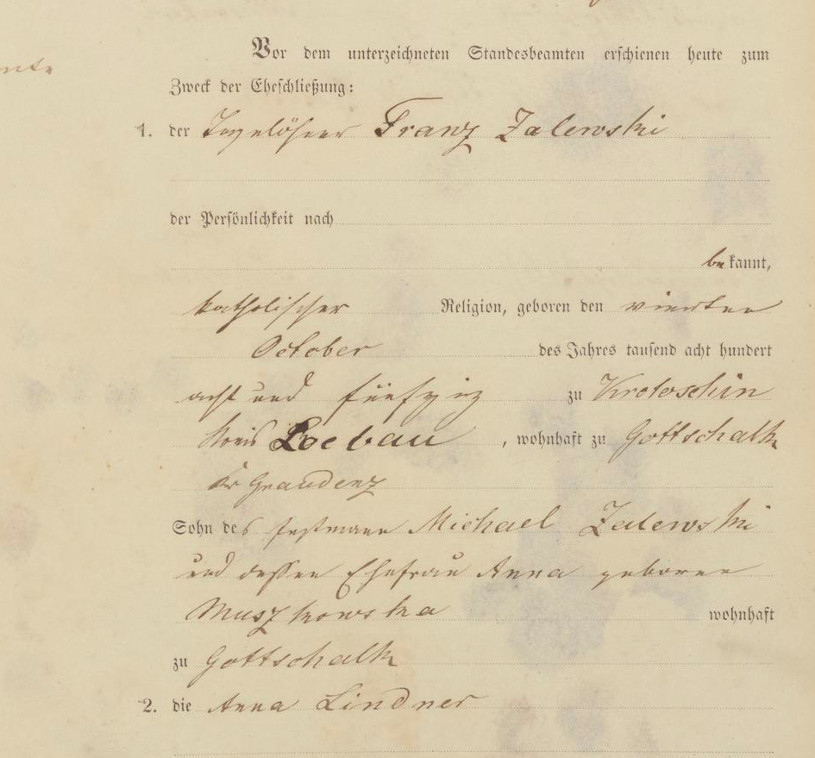 Vor dem unterzeichneten Standesbeamten erschienen heute zum
Zweck der Eheschließung:
1. der Tagelöhner Franz Zalewski
der Persönlichkeit nach
bekannt,
katholischer Religion, geboren den vierten
October des Jahres tausend acht hundert
acht und fünfzig zu Krotoschin
Kreis Loebau, wohnhaft zu Gottschalk
Kr Graudenz
Sohn des Michael Zalewski
und dessen Ehefrau Anna geborne
wohnhaft
zu Gottschalk
2. die Anna Lindner